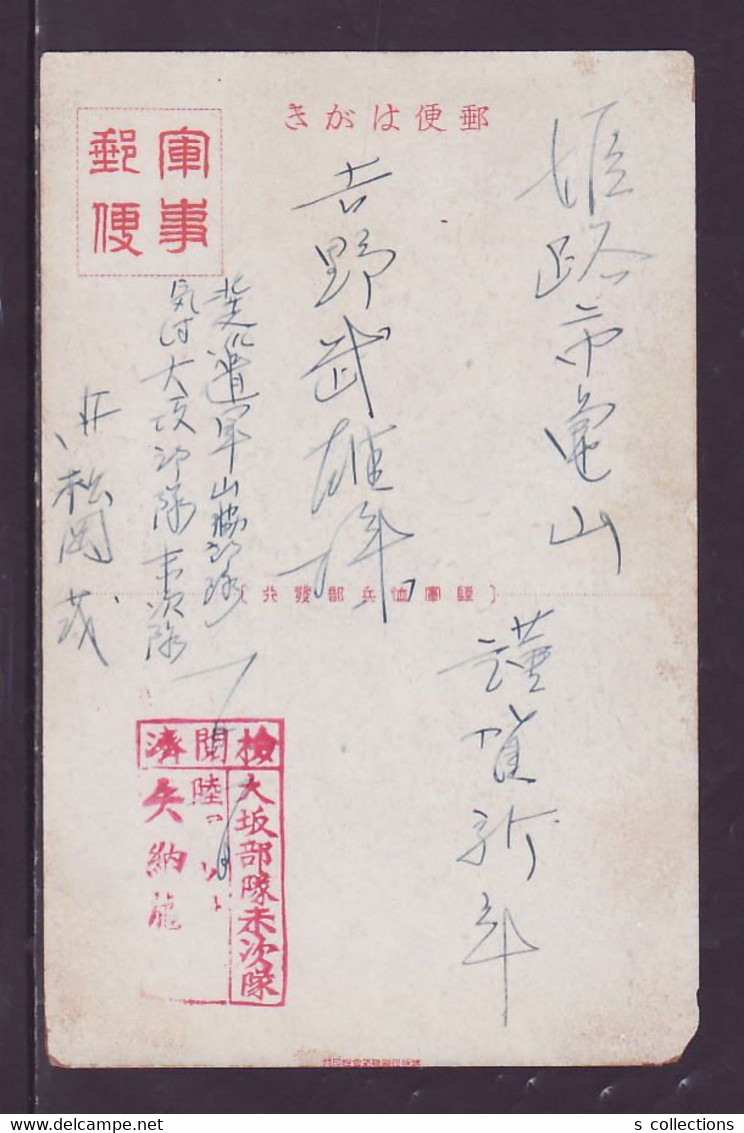 郵便はがき
軍事郵便
姫路市亀山
吉野武雄様
謹賀新年
北支派遣軍山脇部隊
気付大坂部隊末次隊
松岡茂
〔陸軍恤兵部發行〕
檢閲濟
大坂部隊末次隊
陸
矢納
s collections